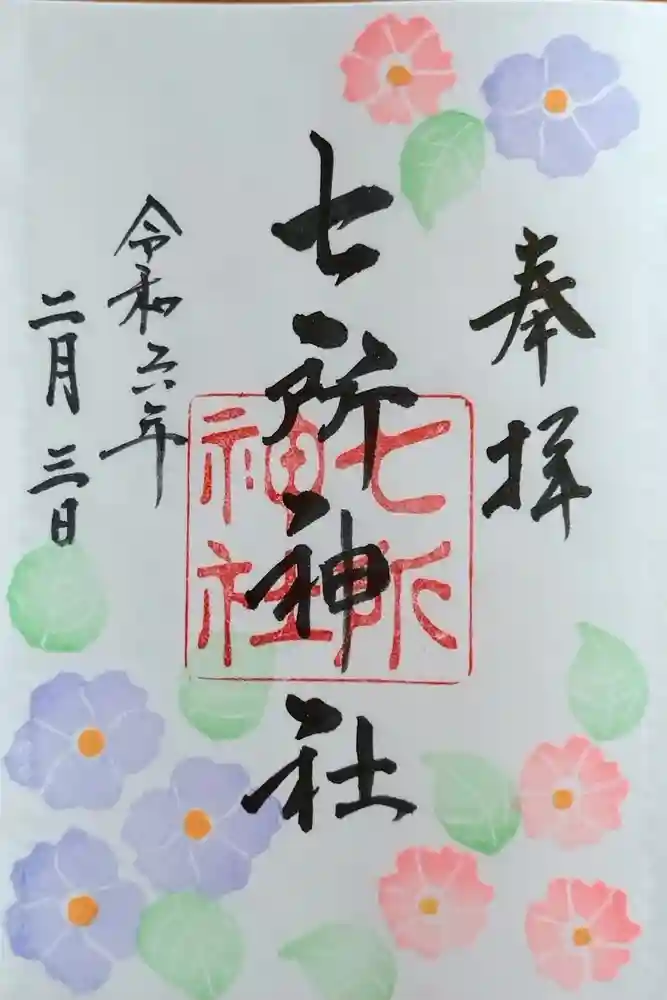 奉拝
七所神社
七所
神社
令和六年
二月三日